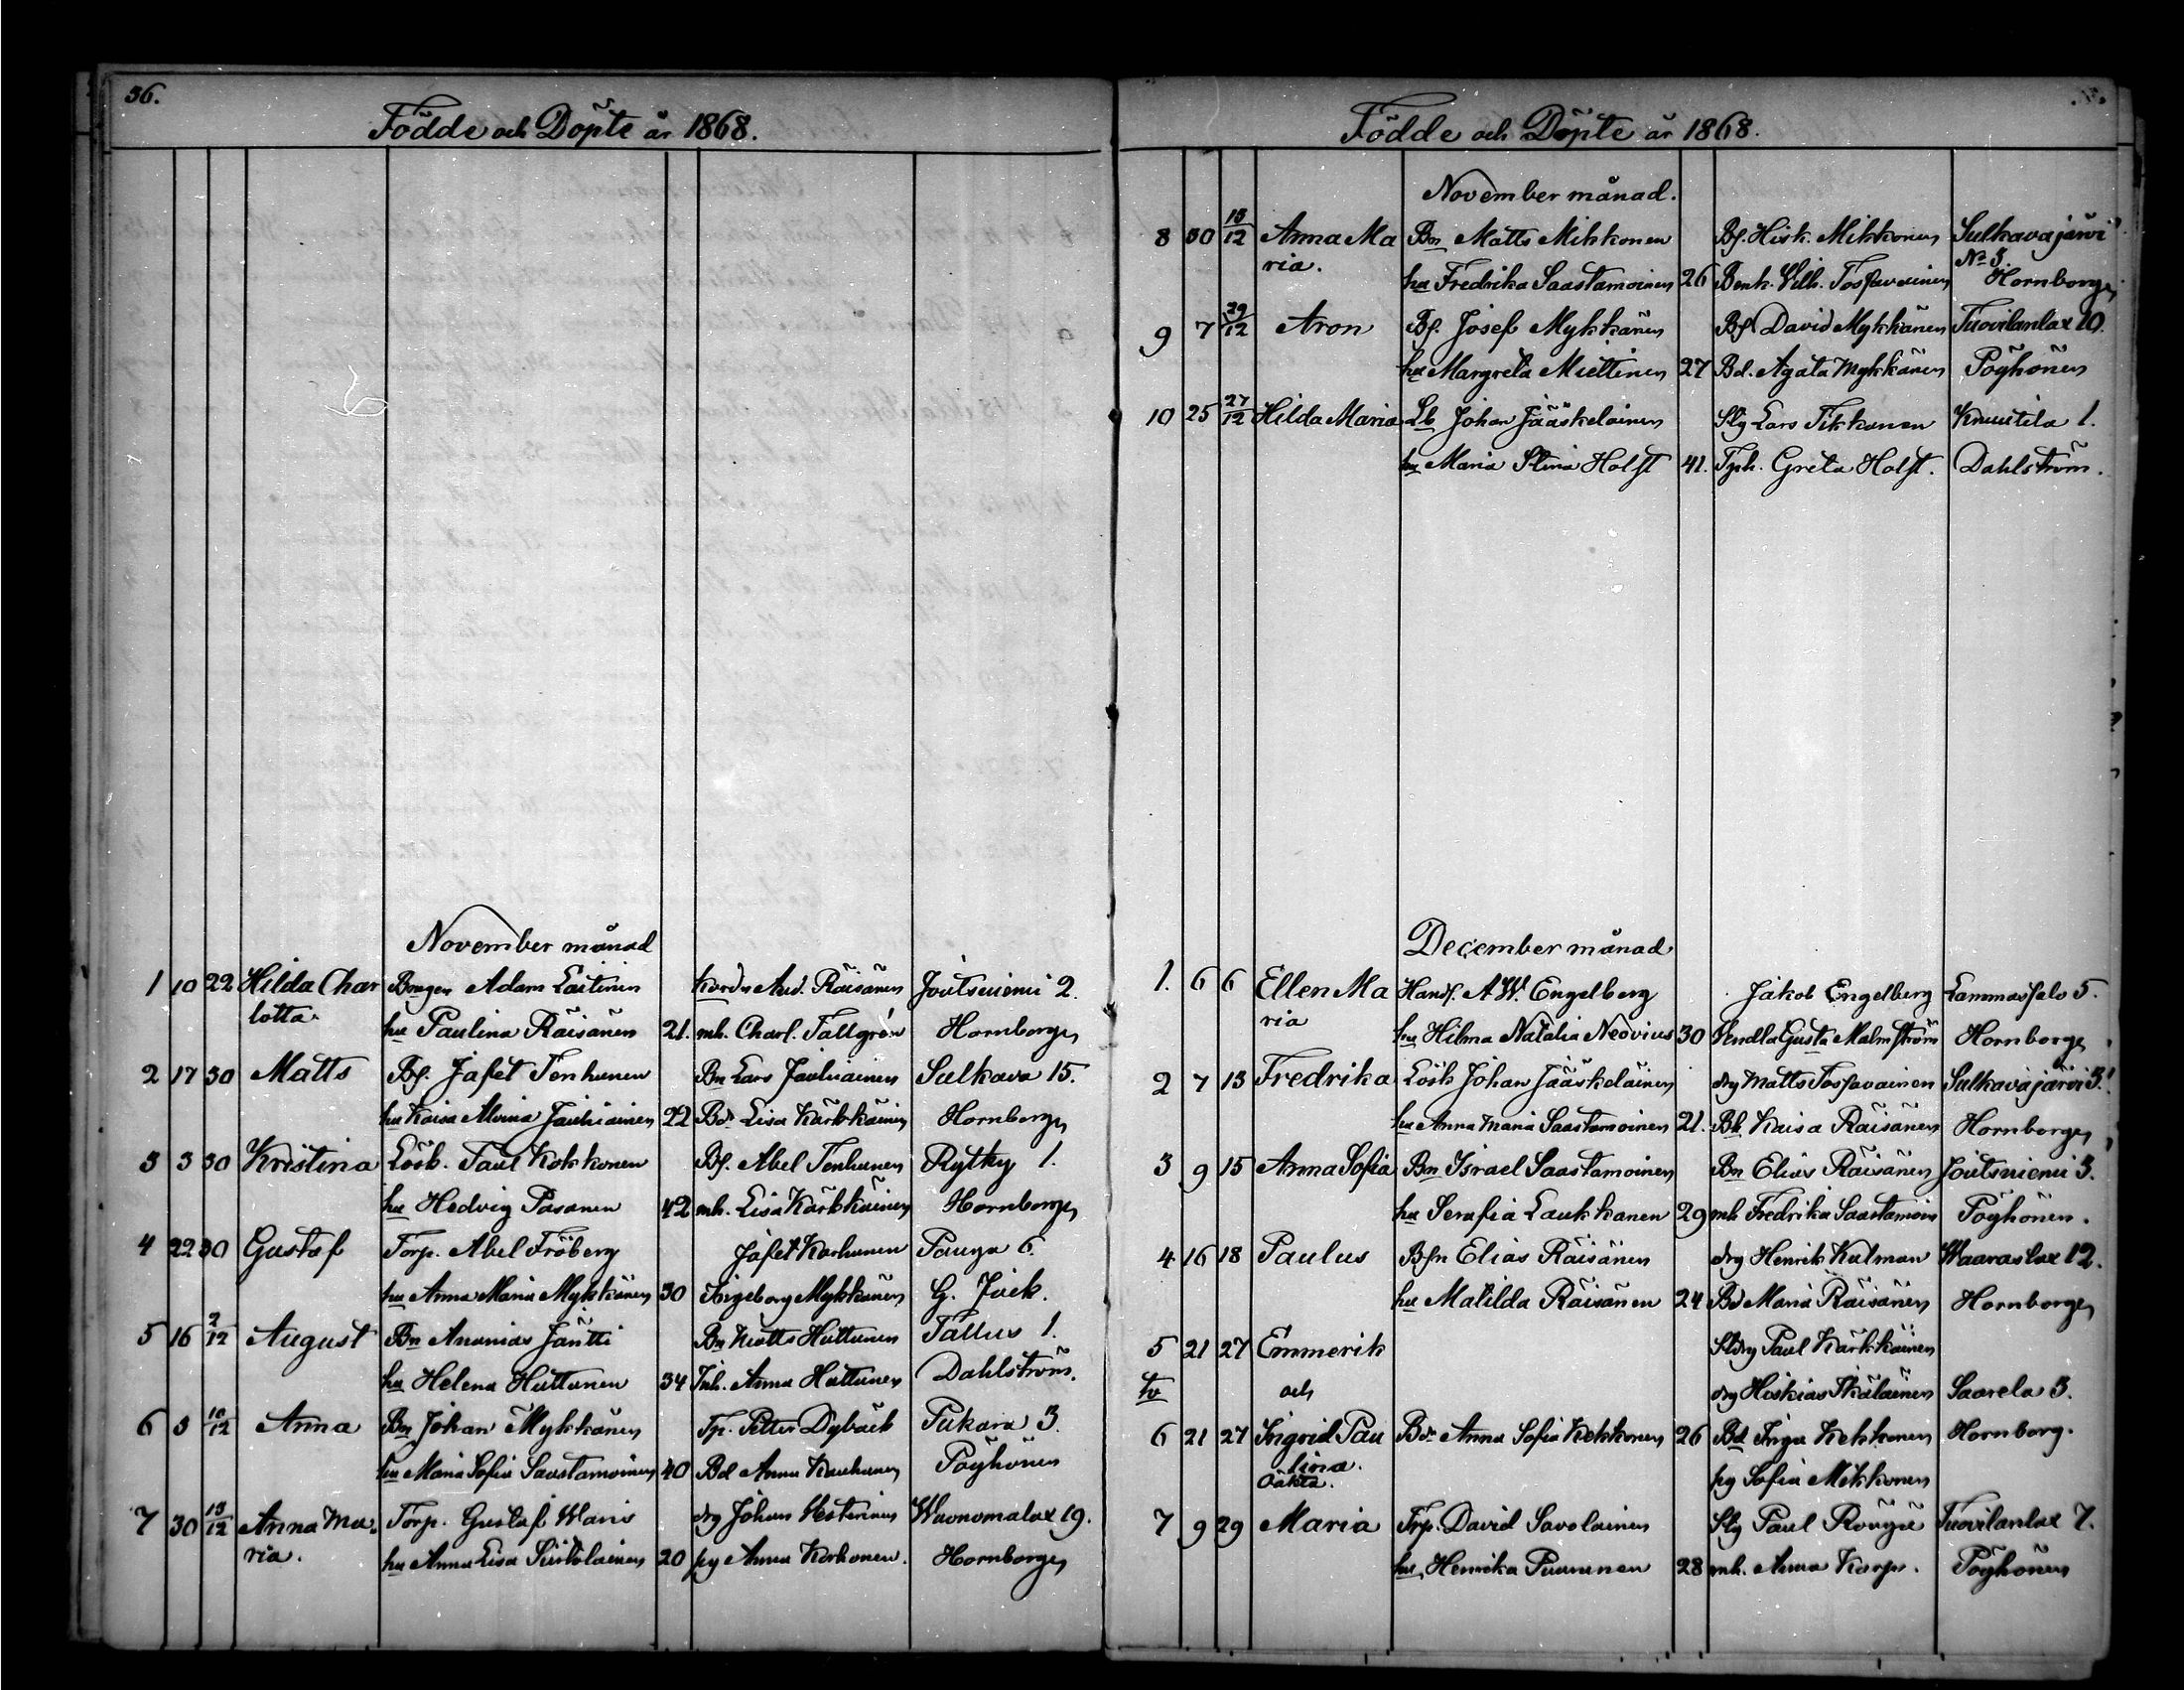 36.
Födde och Döpte år 1868.
November månad
1 10 22 Hilda Char Adam Laitinen Räisänen Joutsniemi 2.
lotta. hu Paulina Räisänen 21. mh. Charl. Tallgrén Hornborg
2 17 30 Matts Bf. Jafet Tenhunen Bn Lars Jauhiainen Sulkava 15.
hu Kaisa Alvina Jauhiainen 22 Bd. Lisa Kärkkäinen Hornborg
3 3 30 Kristina Lösk. Paul Kokkonen Bf. Abel Tenhunen Rytky 1.
hu Hedvig Pasanen 42 mh. Lisa Kärkkäinen Hornborg
4 22 30 Gustaf Torp. Abel Fröberg Jafet Karhunen Panga 6.
hu Anna Maria Mykkänen 30 Ingeborg Mykkänen G. Jack.
5 16 2/12 August Bn Ananias Jäntti Bn Matts Huttunen Tallus 1.
hu Helena Huttunen 34 Inh. Anna Huttunen Dahlström.
6 3 10/12 Anna Bn Johan Mykkänen Tp. Petter Dybäck Pukara 3.
hu Maria Sofia Saastamoinen 40 Bd Anna Kauhanen Pöyhönen
7 30 13/12 Anna Ma= Torp. Gustaf Waris drg Johan Vesterinen Wuonomalax 19.
ria. hu Anna Lisa 20 pg Anna Korhonen. Hornborg
Födde och Döpte år 1868.
November månad.
8 30 13/12 Anna Ma Bn Matts Mikkonen Bf. Hisk. Mikkonen Sulkavajärvi
ria. hu Fredrika Saastamoinen 26 Vilh. Tossavainen No 3. Hornborg
9 7 29/12 Aron Bf. Josef Mykkänen Bf David Mykkänen Tuovilanlax 10.
hu Margreta Miettinen 27 Bd. Agata Mykkänen Pöyhönen
10 25 27/12 Hilda Maria Lb Johan Jääskeläinen Slg Lars Tikkanen Knuutila 1.
hu Maria Stina Holst 41. Tph. Greta Holst. Dahlström.
December månad
1. 6 6 Ellen Ma Handl. A. W. Engelberg Jakob Engelberg Lammassalo 5.
ria hu Hilma Natalia Neovius 30 Vendla Gusta Malmström Hornborg
2 7 13 Fredrika Lösk Johan Jääskeläinen drg Matts Tossavainen Sulkavajärvi 3.
hu Anna Maria Saastamoinen 21. Bh Kaisa Räisänen Hornborg
3 9 15 Anna Sofia Bn Israel Saastamoinen Bn Elias Räisänen Joutsniemi 3.
hu Serafia Laukkanen 29 mh Fredrika Saastamoin Pöyhönen.
4 16 18 Paulus Bfn Elias Räisänen drg Henrik Kulman Waaraslax 12.
hu Matilda Räisänen 24 Bd Maria Räisänen Hornborg
5 21 27 Emmerik Sldrg Paul Kärkkäinen
tv och drg Hiskias Saarela 3.
6 21 27 Ingrid Pau Bdr Anna Sofia Kekkonen 26 Bd Inga Kekkonen Hornborg.
lina. pg Sofia Mikkonen
Oäkta.
7 9 29 Maria Trp. David Savolainen Slg Paul Tuovilanlax 7.
hu Henrika Puurunen 28 mh. Anna Karp. Pöyhönen